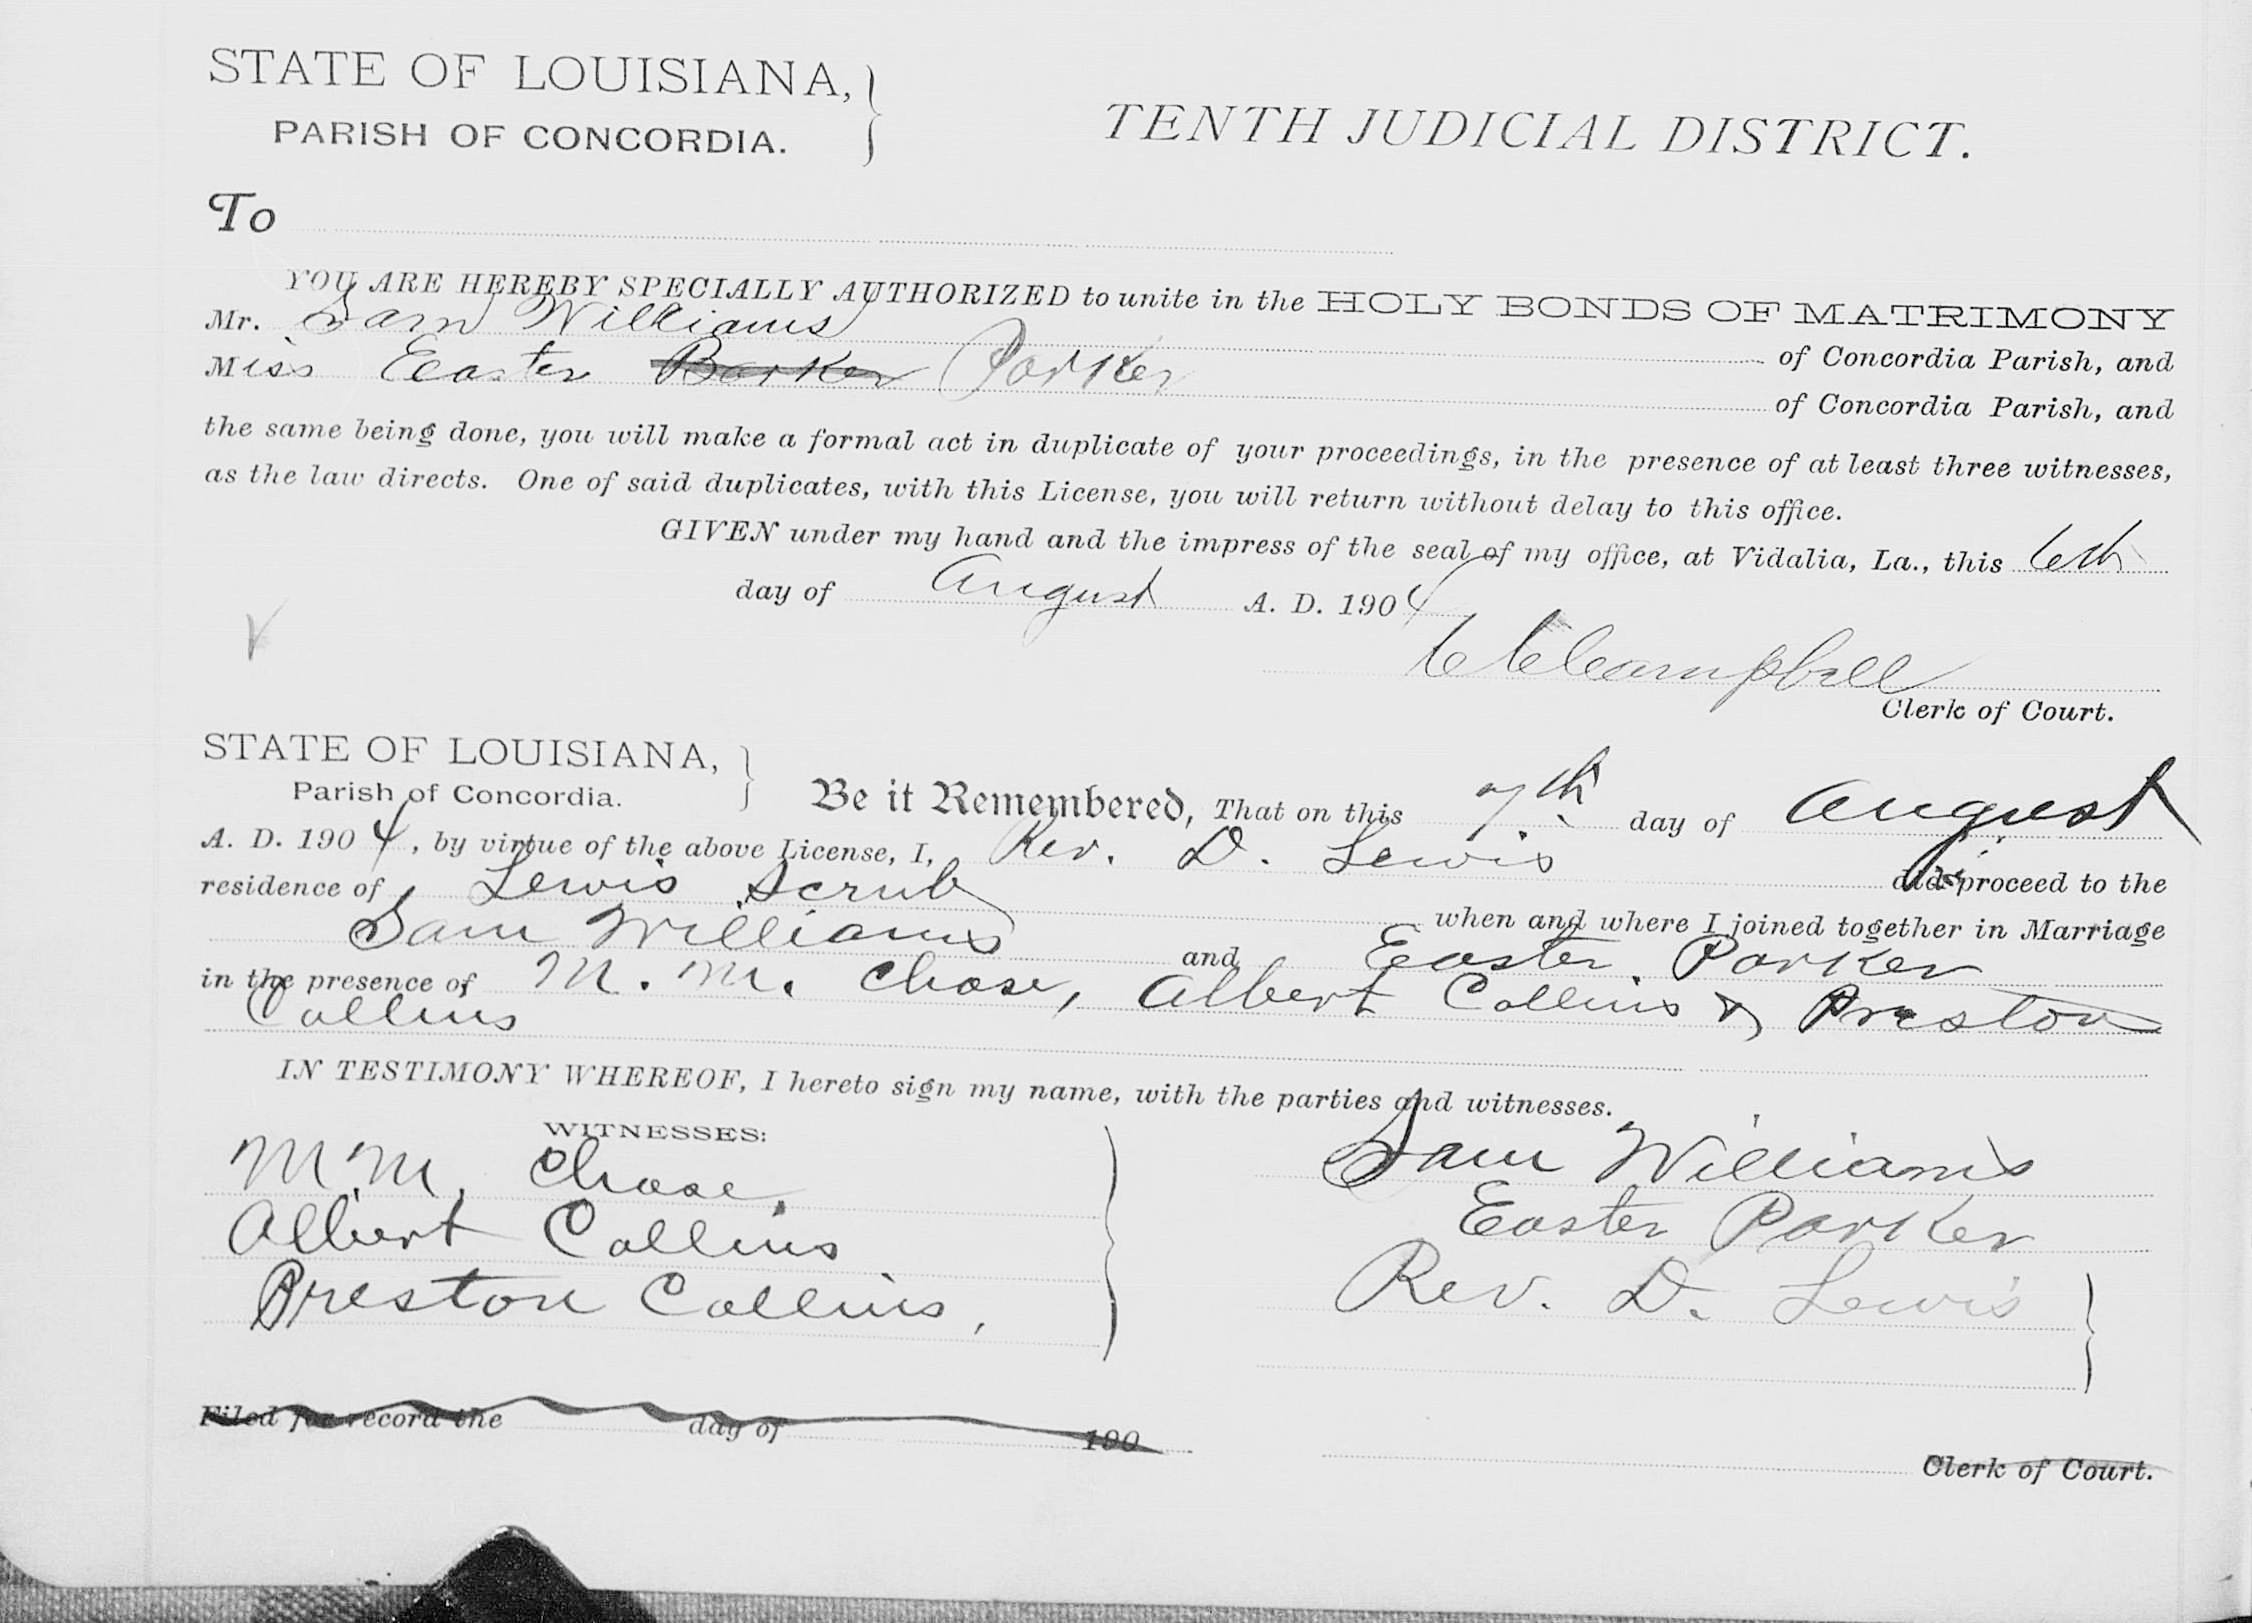 STATE OF LOUISIANA,
PARISH OF CONCORDIA.
TENTH JUDICIAL DISTRICT.
To
YOU ARE HEREBY SPECIALLY AUTHORIZED to unite in the HOLY BONDS OF MATRIMONY
Mr. Sam Williams of Concordia Parish, and
Miss Easter Barker Parker of Concordia Parish, and
the same being done, you will make a formal act in duplicate of your proceedings, in the presence of at least three witnesses,
as the law directs. One of said duplicates, with this License, you will return without delay to this office.
GIVEN under my hand and the impress of the seal of my office, at Vidalia, La., this 6th
day of August A. D. 1904
C C Campbell
Clerk of Court.
STATE OF LOUISIANA,
Parish of Concordia.
Be it Remembered, That on this 7th day of August
A. D. 1904, by virtue of the above License, I, Rev. D. Lewis did proceed to the
residence of Lewis Scrub when and where I joined together in Marriage
Sam Williams and Easter Parker
in the presence of M. M. Chase, Albert Collins & Preston
Collins
IN TESTIMONY WHEREOF, I hereto sign my name, with the parties and witnesses.
WITNESSES:
M. M. Chase,
Albert Collins
Preston Collins,
Sam Williams
Easter Parker
Rev. D. Lewis
Filed for record the day of 190
Clerk of Court.